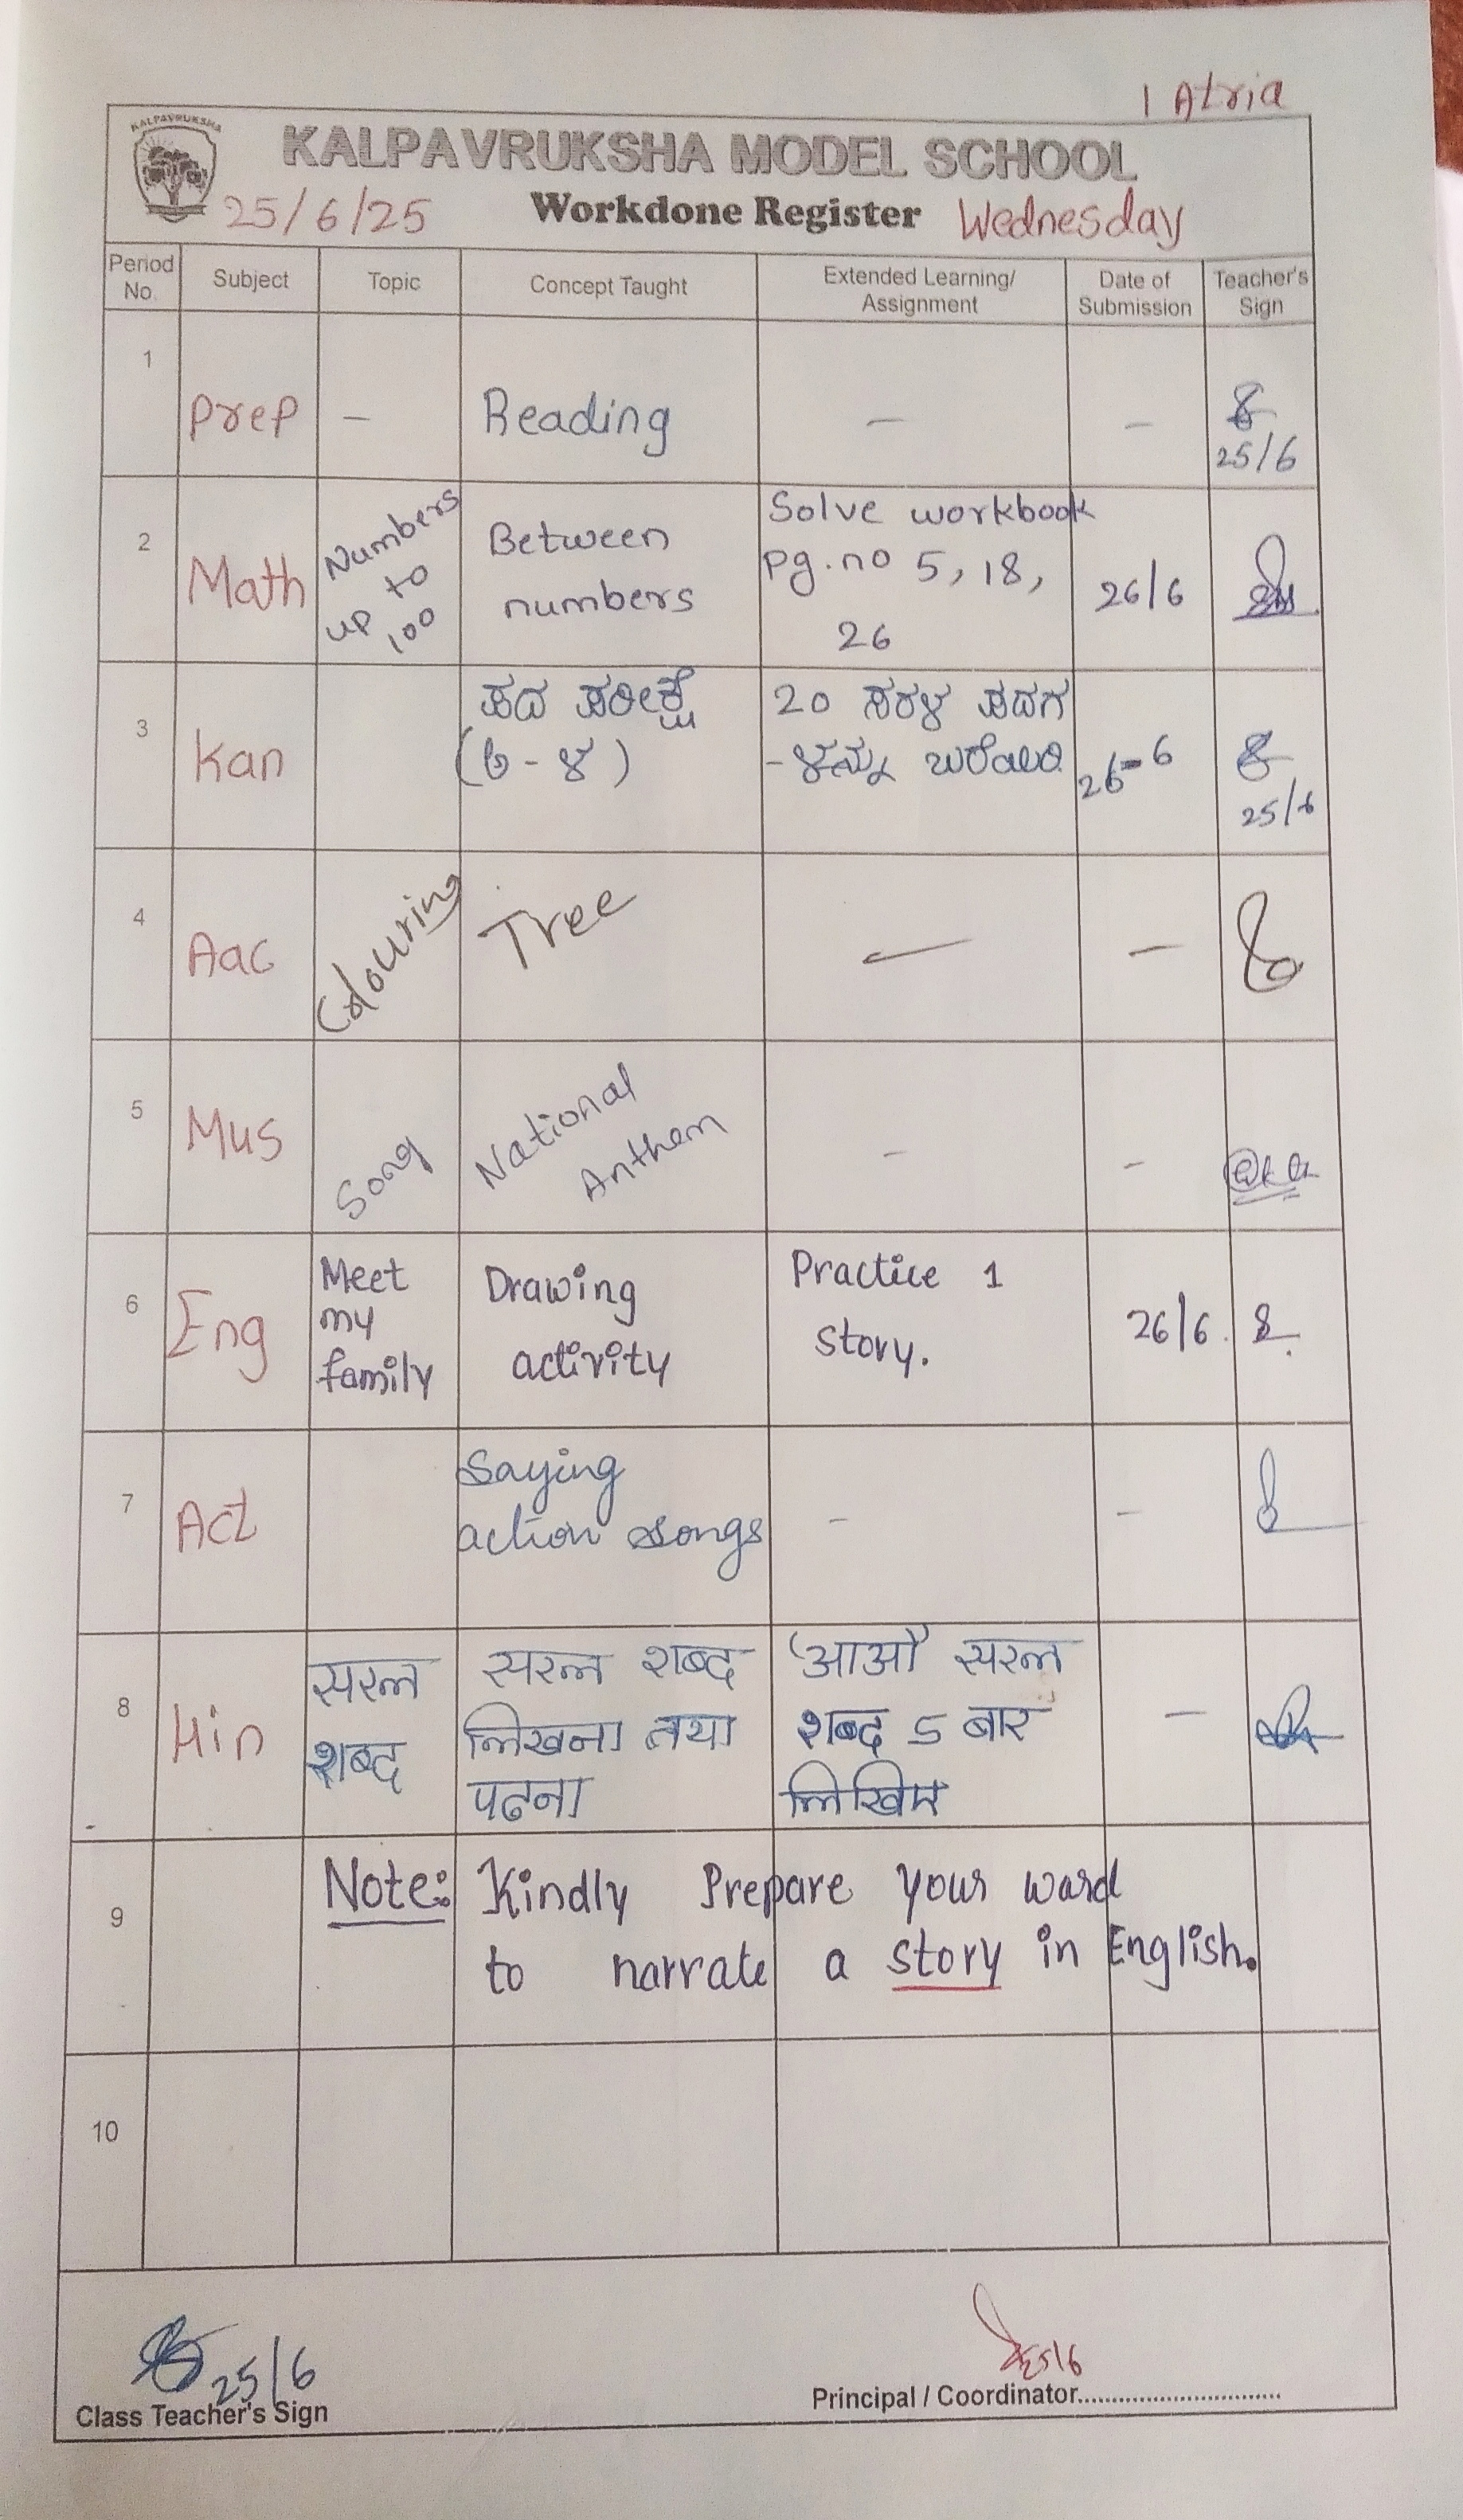 1 Atria
KALPAVRUKSHA
KALPAVRUKSHA MODEL SCHOOL
25/6/25 Workdone Register Wednesday
Period No. Subject Topic Concept Taught Extended Learning/ Assignment Date of Submission Teacher's Sign
1 Prep - Reading - - 25/6
2 Math Numbers up to 100 Between numbers Solve workbook pg.no 5, 18, 26 26/6
3 Kan ಪದ ಪರೀಕ್ಷೆ (ಅ-ಳ) 20 ಸರಳ ಪದಗ -ಳನ್ನು ಬರೆಯಿರಿ 26-6 25/6
4 Aac Colouring Tree - -
5 Mus Song National Anthem - -
6 Eng Meet my family Drawing activity Practice 1 story. 26/6.
7 Act Saying action songs - -
8 Hin सरल शब्द सरल शब्द लिखना तथा पढना 'आओ' सरल शब्द 5 बार लिखिए -
9 Note: Kindly Prepare your ward
to narrate a story in English.
10
25/6 25/6
Class Teacher's Sign Principal / Coordinator..............................